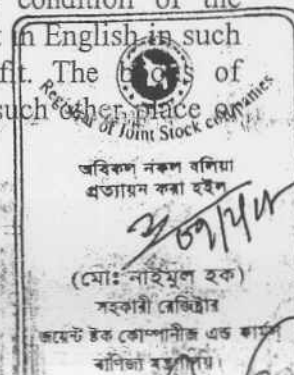 condition of the
in English in such
fit. The books of
such other place or
Registrar of Joint Stock Companies
অবিকল নকল বলিয়া
প্রত্যায়ন করা হইল
(মোঃ নাইমুল হক)
সহকারী রেজিষ্ট্রার
জয়েন্ট ষ্টক কোম্পানীজ এন্ড ফার্মস
বাণিজ্য মন্ত্রণালয়।